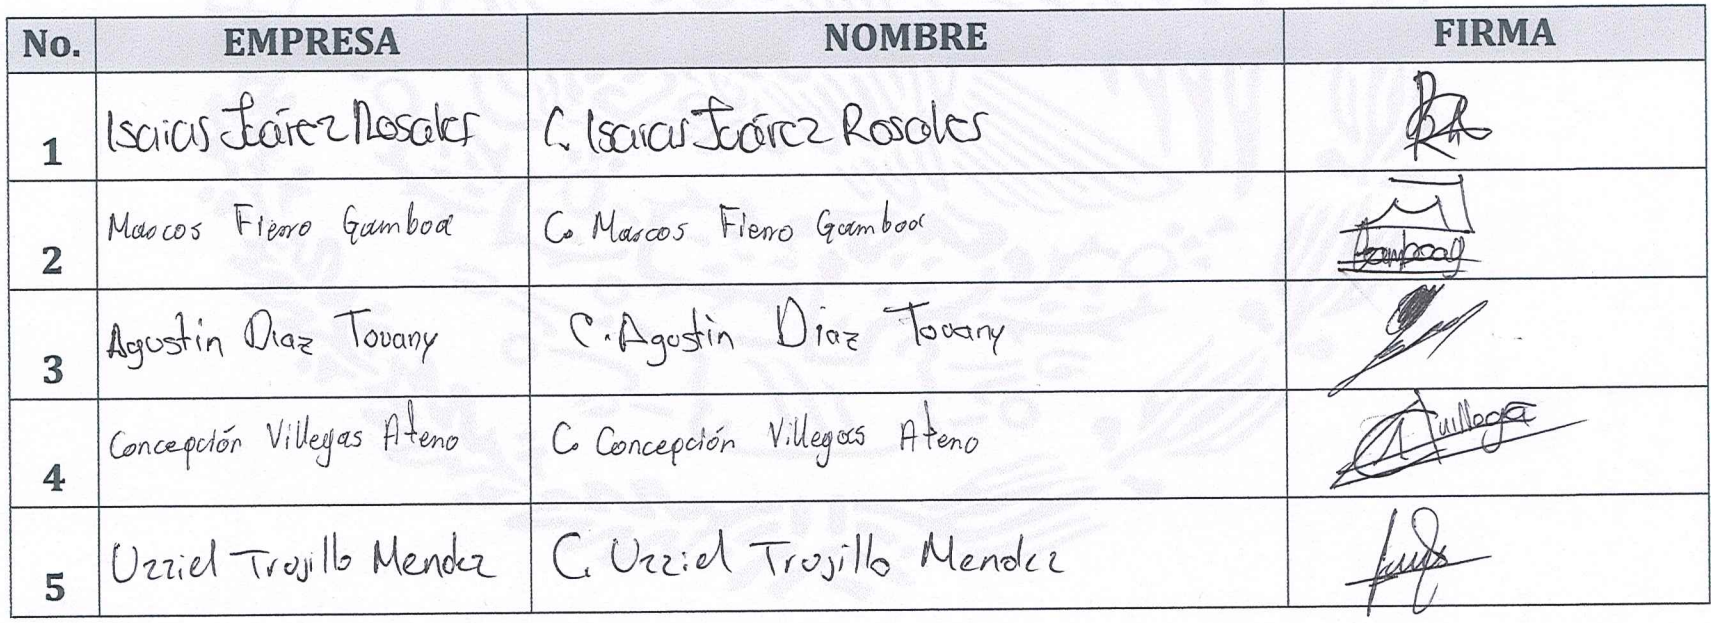 No. EMPRESA NOMBRE FIRMA
1 Isaias Juárez Rosales C. Isaias Juárez Rosales
2 Marcos Fierro Gamboa C. Marcos Fierro Gamboa
3 Agustin Diaz Tovany C. Agustin Diaz Tovany
4 Concepción Villegas Ateno C. Concepción Villegas Ateno
5 Uzziel Trujillo Mendez C. Uzziel Trujillo Mendez